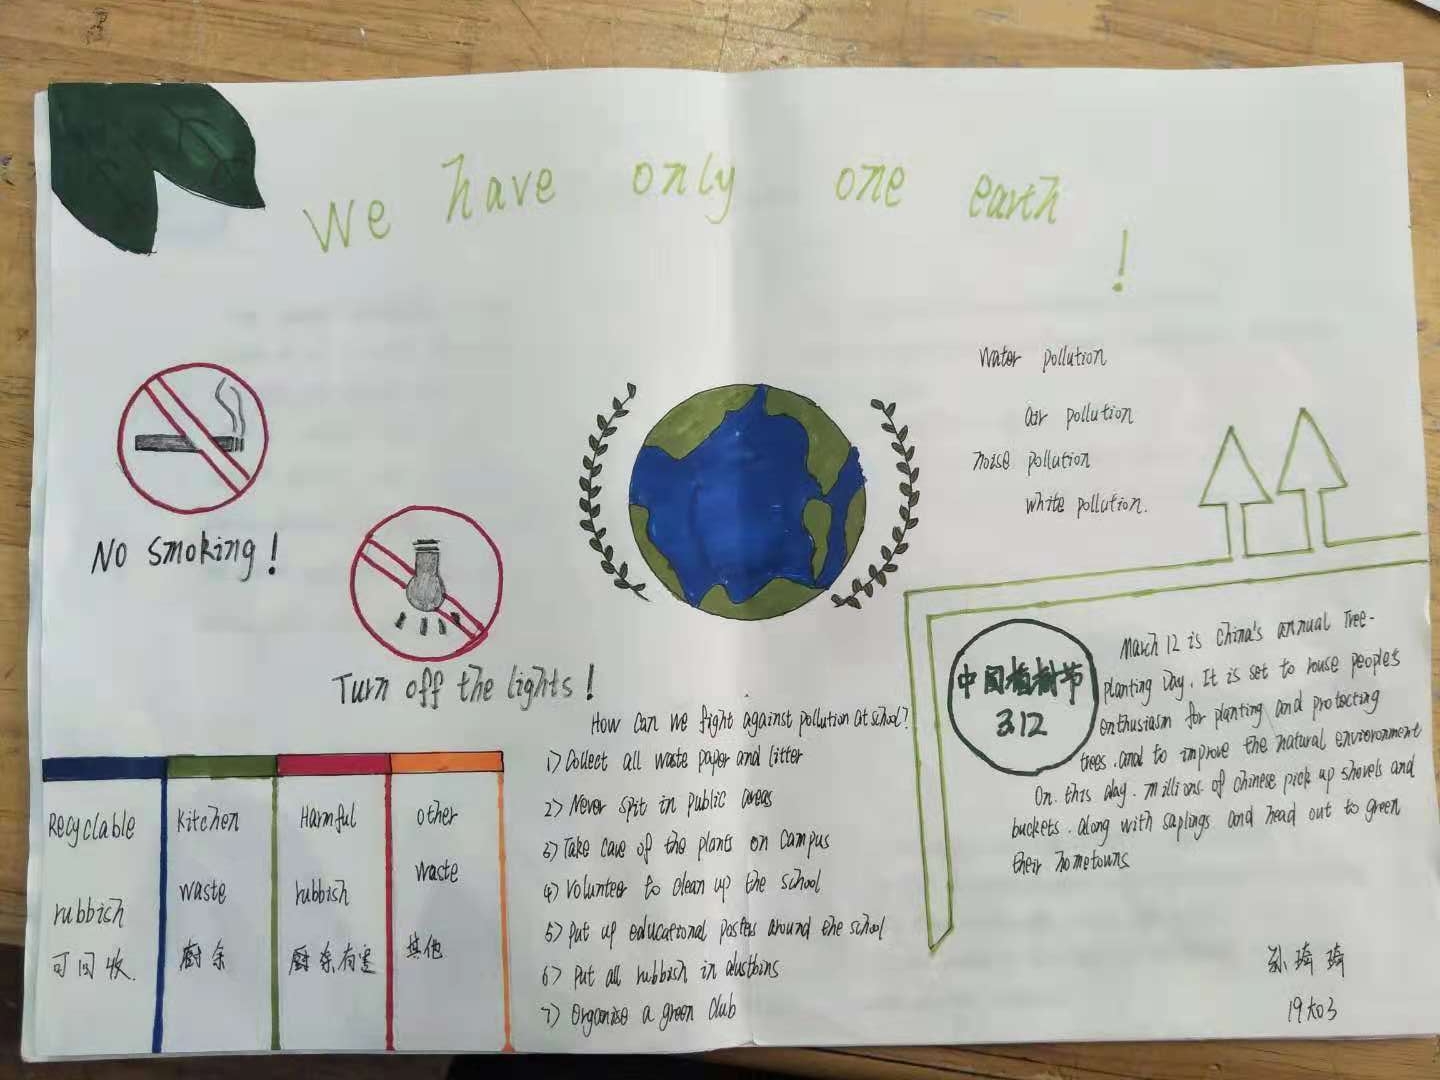 We have only one earth
!
No smoking!
Turn off the lights!
Water pollution
air pollution
noise pollution
white pollution.
How can we fight against pollution at school?
1) Collect all waste paper and litter
2) Never spit in public areas
3) Take care of the plants on campus
4) Volunteer to clean up the school
5) Put up educational posters around the school
6) Put all rubbish in dustbins
7) Organise a green club
Recyclable
rubbish
可回收
Kitchen
waste
厨余
Harmful
rubbish
厨余有害
other
waste
其他
中国植树节
3.12
March 12 is China's annual Tree-
planting Day. It is set to rouse people's
enthusiasm for planting and protecting
trees. and to improve the natural environment
On. this day. millions of chinese pick up shovels and
buckets. along with saplings and head out to green
their hometowns
孙琦琦